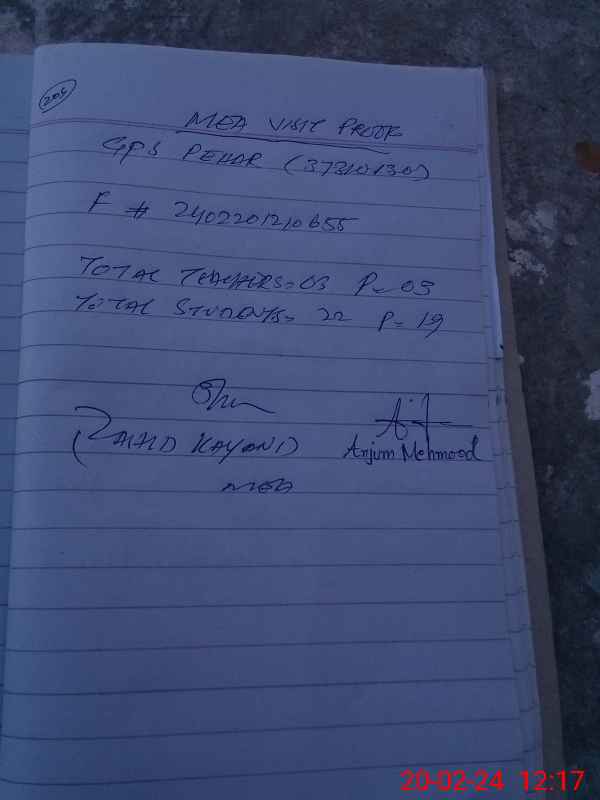 206
MEA VISIT PROOF
GPS PEHAR (37310130)
F # 2402201210655
TOTAL TEACHERS=03 P=03
TOTAL STUDENTS= 22 P= 19
(ZAHID KAYANI) Anjum Mehmood
MEA
20-02-24 12:17